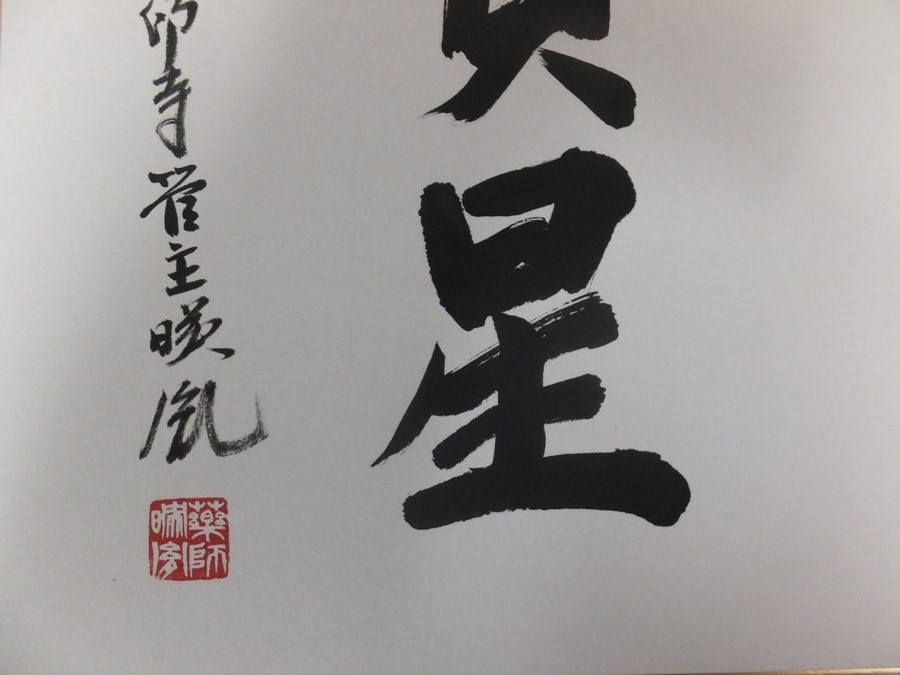 星
師寺管主暎胤
藥師
暎胤